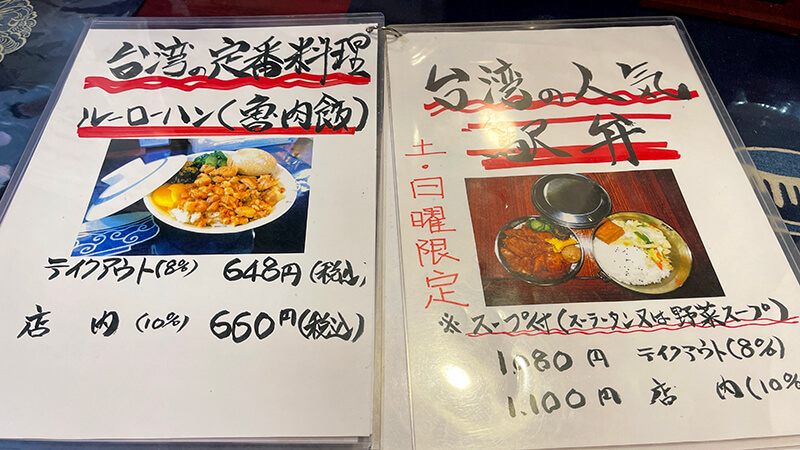 台湾の定番料理
ルーローハン(魯肉飯)
テイクアウト(8%) 648円(税込)
店内(10%) 660円(税込)
台湾の人気
駅弁
土・日曜限定
※スープ付(スーラータン又は野菜スープ)
1,080円 テイクアウト(8%)
1,100円 店内(10%